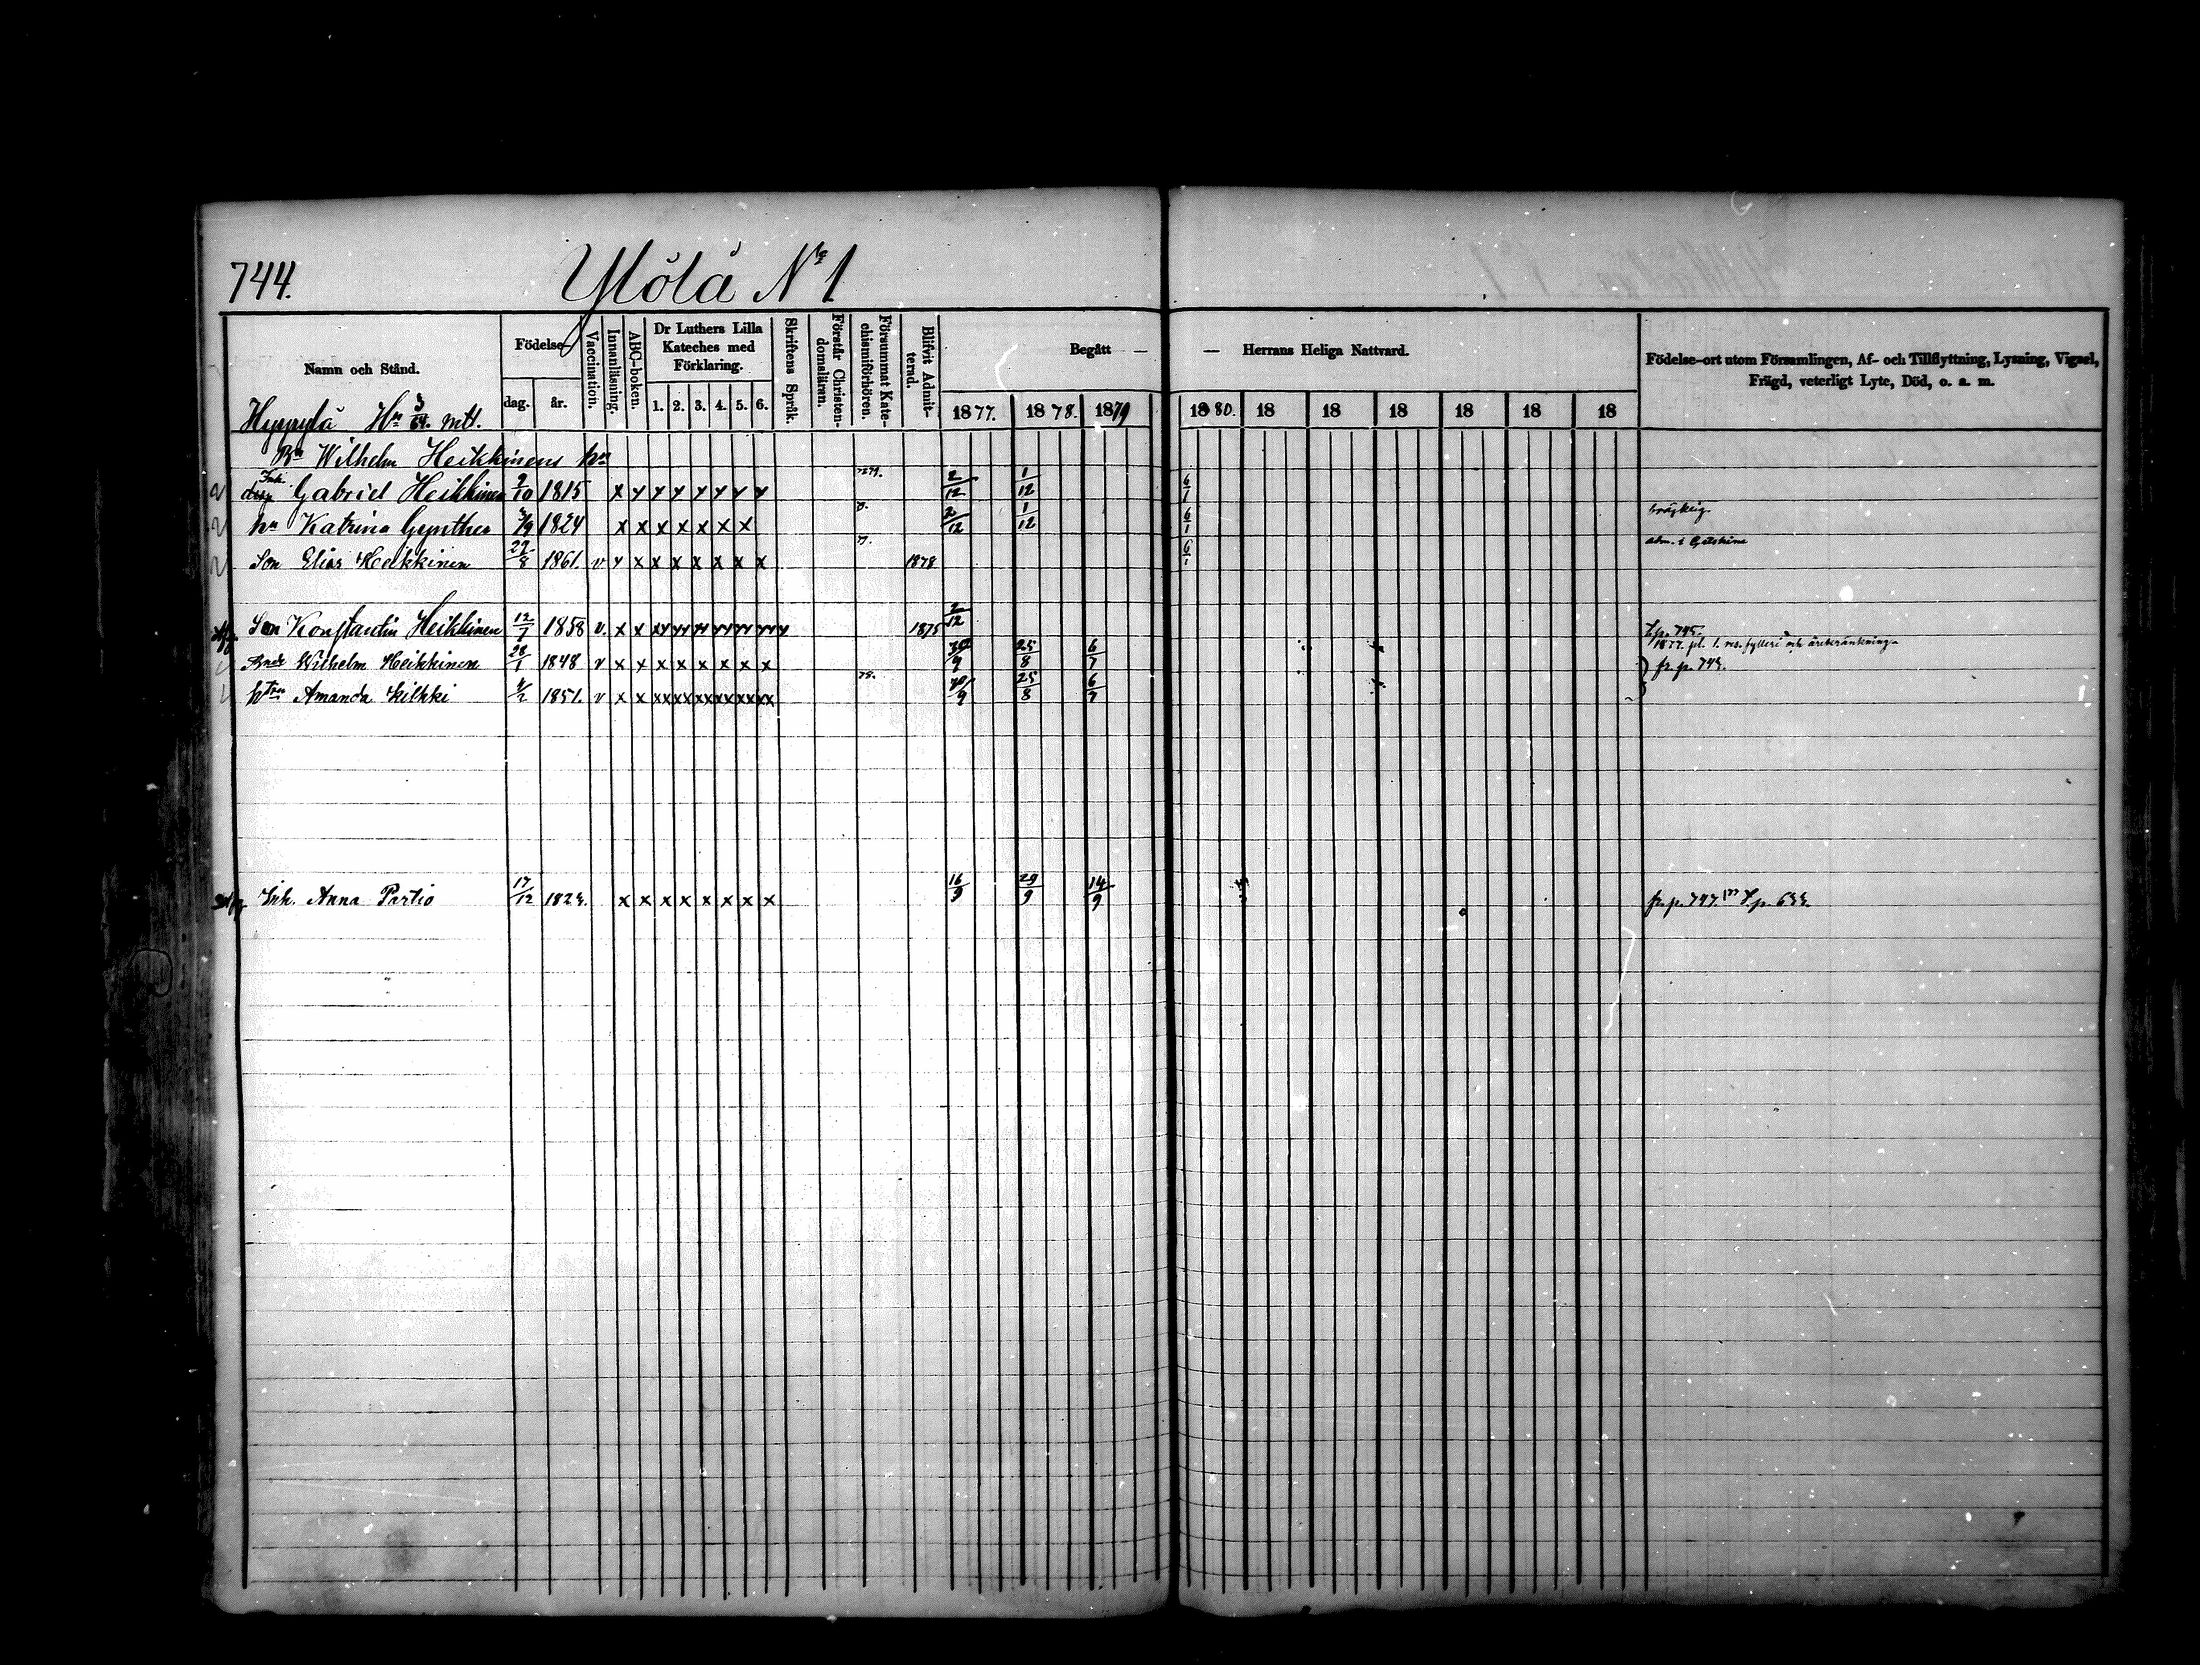 744. Ylölä No 1
Namn och Stånd. Födelse- dag. år. Vaccination. Innanläsning. ABC-boken. Dr Luthers Lilla Kateches med Förklaring. 1. 2. 3. 4. 5. 6. Skriftens Språk. Förstår Christendomsläran. Försummat Katechismiförhören. Blifvit Admitterad. Begått — — Herrans Heliga Nattvard. 1877. 1878. 1879 1880. 18 18 18 18 18 18 Födelse-ort utom Församlingen, Af- och Tillflyttning, Lysning, Vigsel, Frägd, veterligt Lyte, Död, o. a. m.
Hyypylä Hn 3/64. mtl.
Bn Wilhelm Heikkinens hn
Gabriel Heikkinen 9/10 1815 x y y y y y y y 2/12 1/12 6/1
hu Katrina Gynther /9 1824 x x x x x x x 2/12 1/12 6/1 bräcklig
Son Elias Heikkinen 29/8 1861. v y x x x x x x 1878 6/1 adm. i
Son Konstantin Heikkinen 12/7 1858 v. x x 1875 2/12 T.p. 745.
1877 pl. f. och ärekränkning
Wilhelm Heikkinen 28/1 1848 v x x x x x x x x /9 25/8 6/7 fr. p. 743.
Amanda Kilkki 4/2 1851. v x x xx xx xx xx xx xx 78. /9 25/8 6/7
Inh. Anna Partio 17/12 1823. x x x x x x x x 16/9 29/9 14/9 fr. p. 747. T.p. 633.